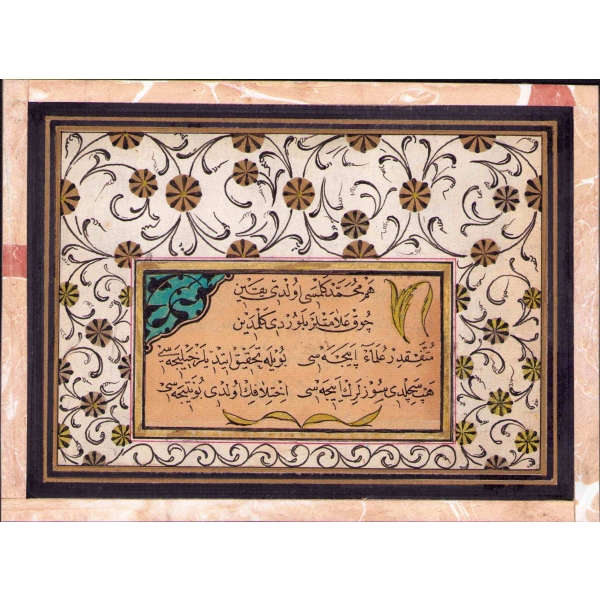 هم محمد كلمسی اولدی یقین
چوق علامتلر بلوردی كلمدین
متفقدر علماء اپیجه سی بویله تحقیق ایتدیلر
هب سچلدی سوزلرك اییجه سی اختلافك اولدی بو نتیجه سی